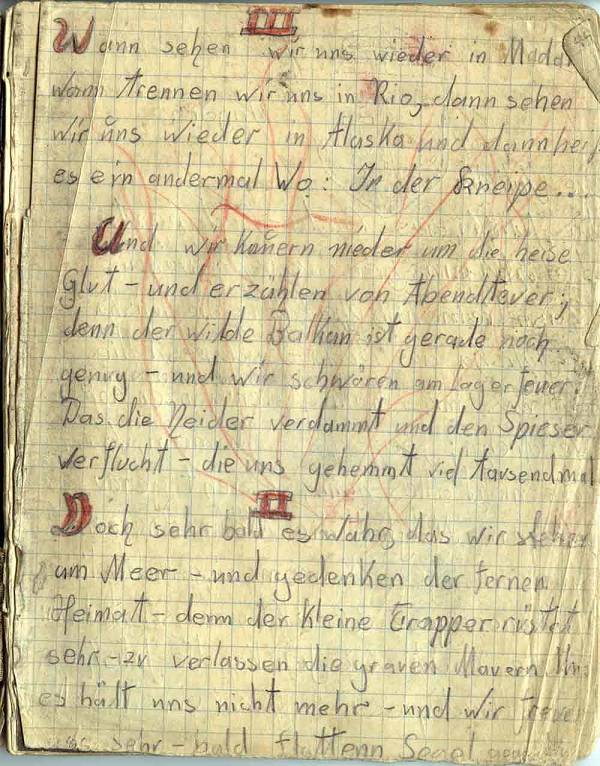 III
Wann sehen wir uns wieder in Mada
wann trennen wir uns in Rio, dann sehen
wir uns wieder in Alaska und dann heis
es ein andermal Wo: In der Kneipe...
Und wir kauern nieder um die heise
Glut - und erzählen von Abendteuer;
denn der wilde Balkan ist gerade noch
genug - und wir schwören am Lagerfeuer.
Das die Neider verdammt und den Spieser
verflucht - die uns gehemmt viel tausendmal
II
Doch sehr bald es wahr, das wir stehen
am Meer - und gedenken der fernen
Heimat - denn der kleine Trapper rüstet
sehr - zu verlassen die grauen Mauern
es hält uns nicht mehr - und wir freuen
uns sehr - bald flattenn Segel